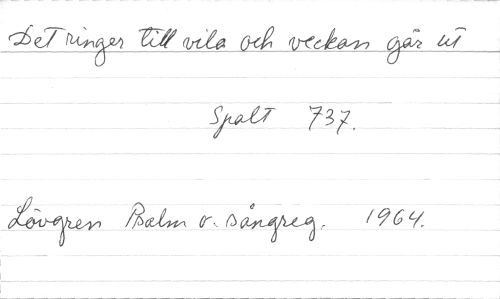 Det ringer till vila och veckan går ut
Spalt 737.
Lövgren Psalm o. sångreg. 1964.